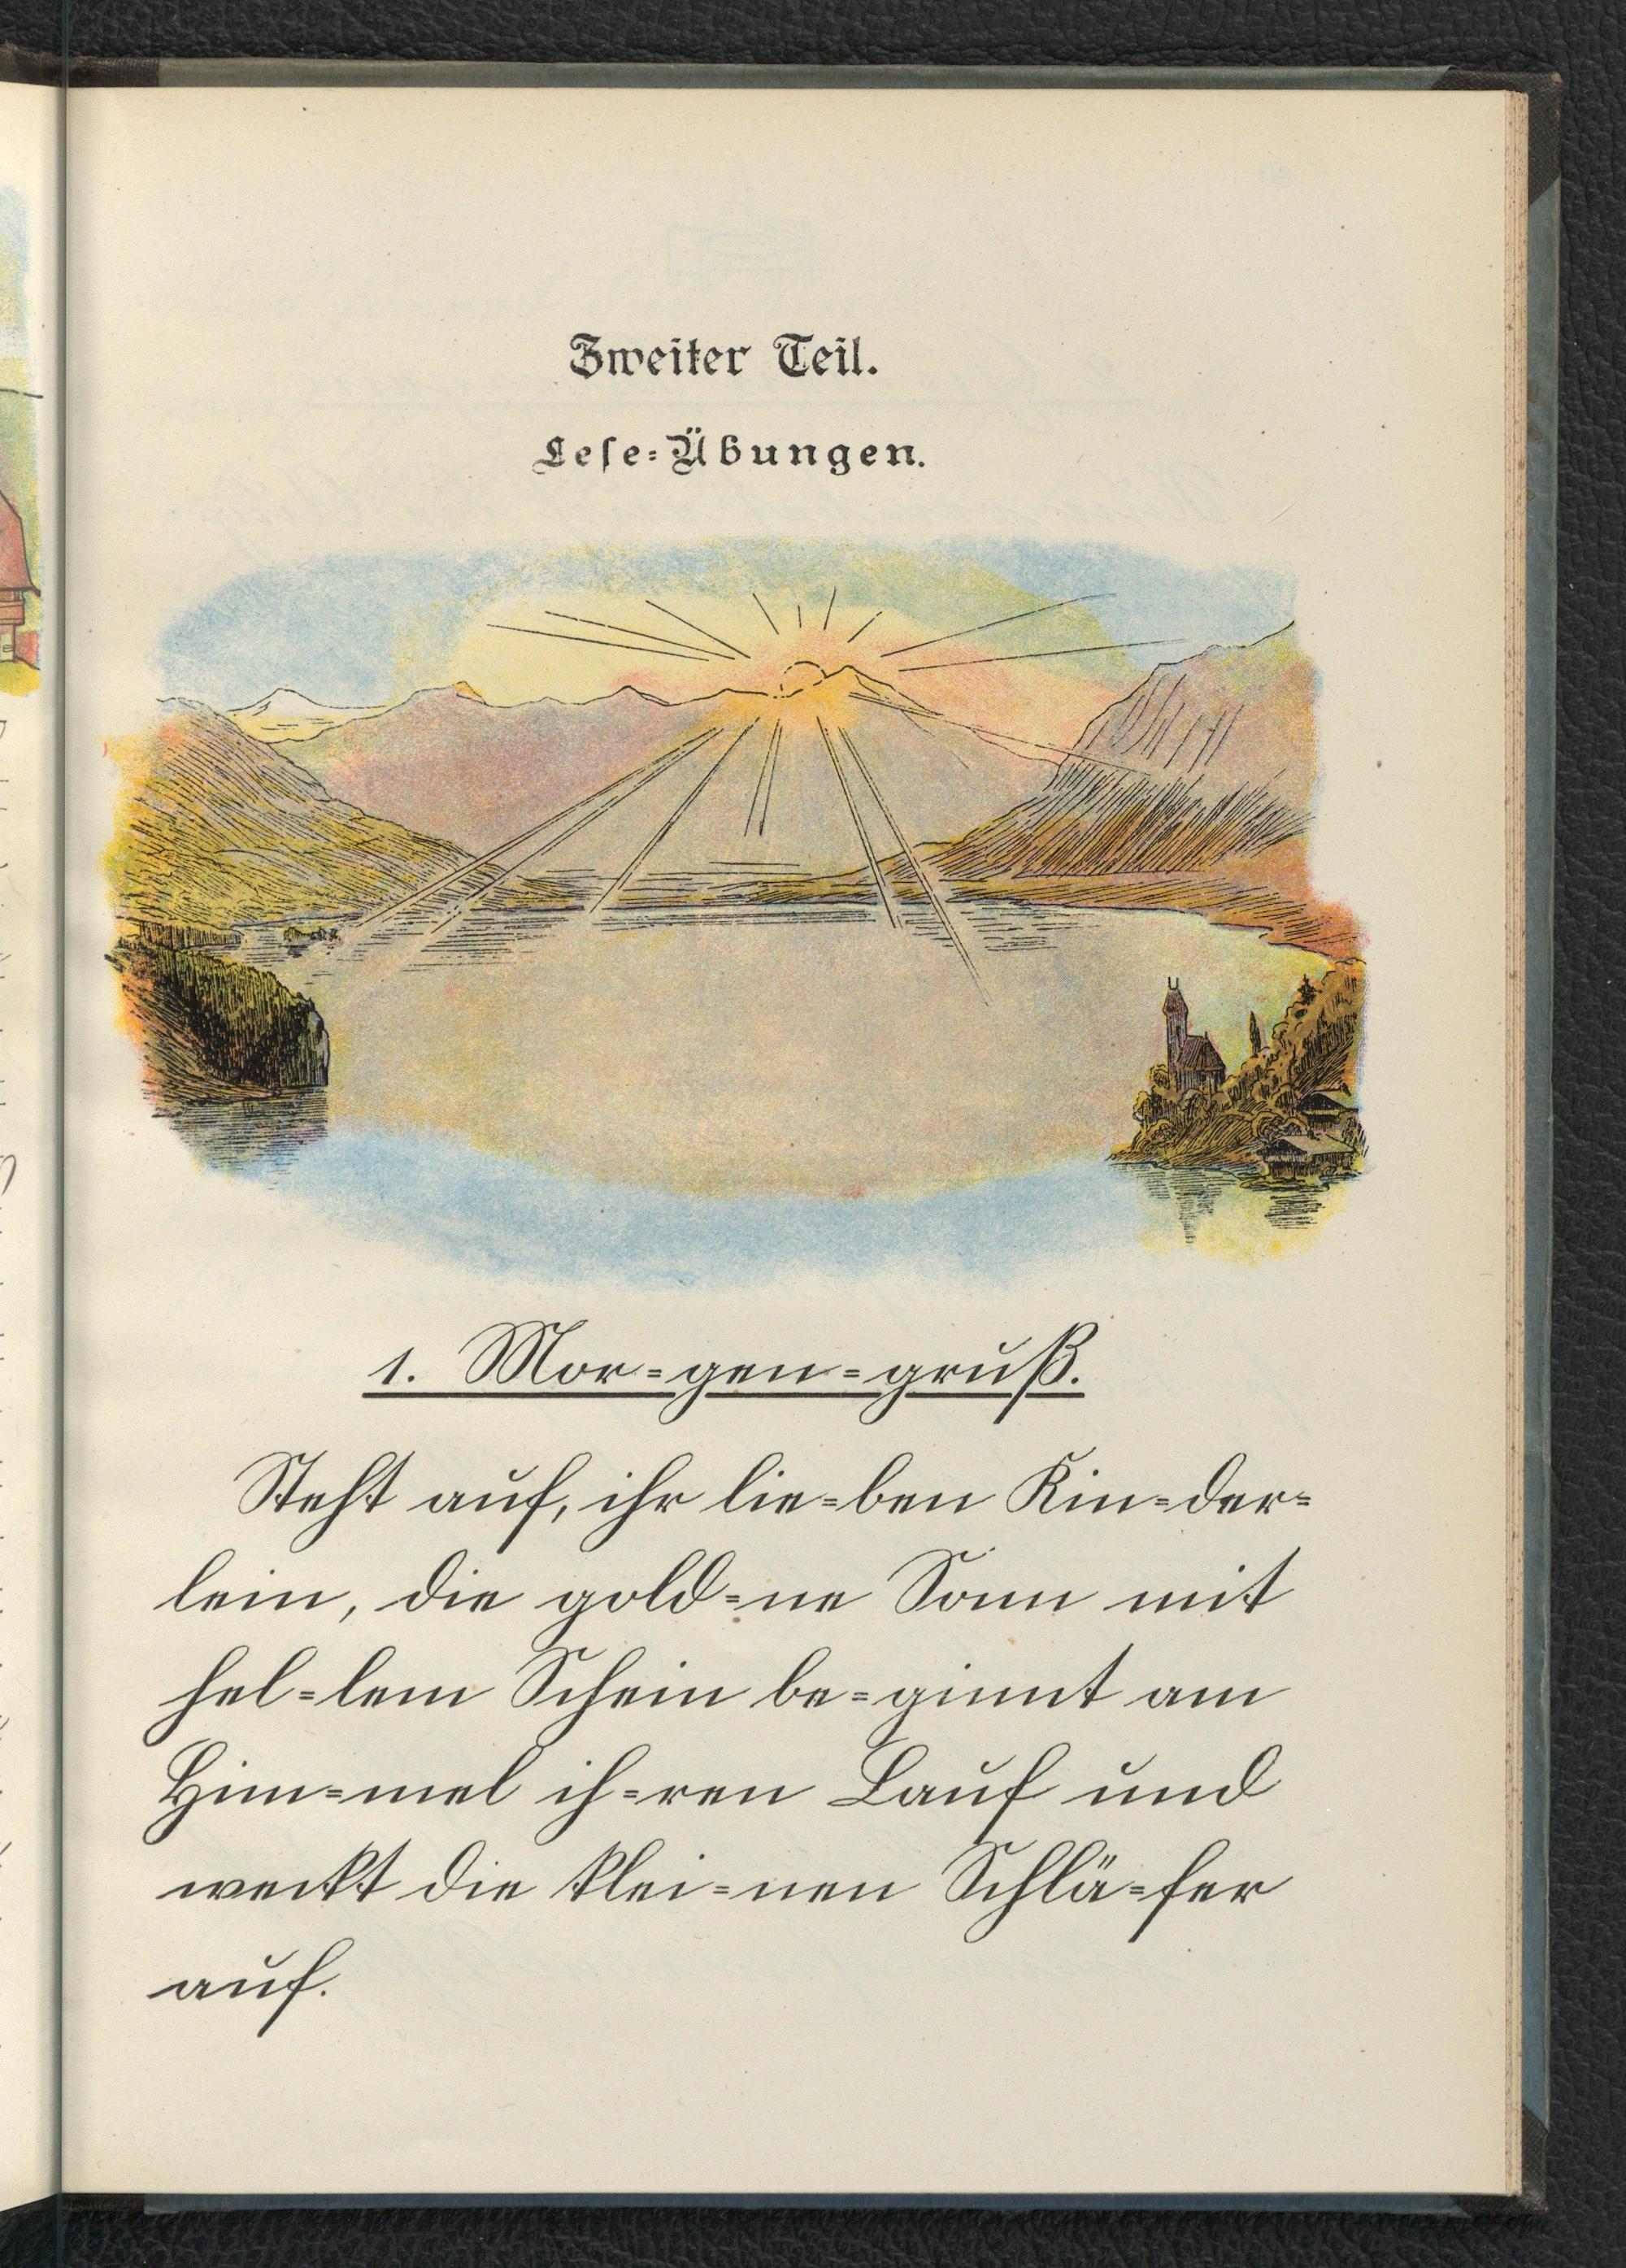 Zweiter Teil.
Lese-Übungen.
1. Mor-gen-gruß.
Steht auf, ihr lie-ben Kin-der-
lein, die gold-ne Sonn mit
hel-lem Schein be-ginnt am
Him-mel ih-ren Lauf und
weckt die klei-nen Schlä-fer
auf.